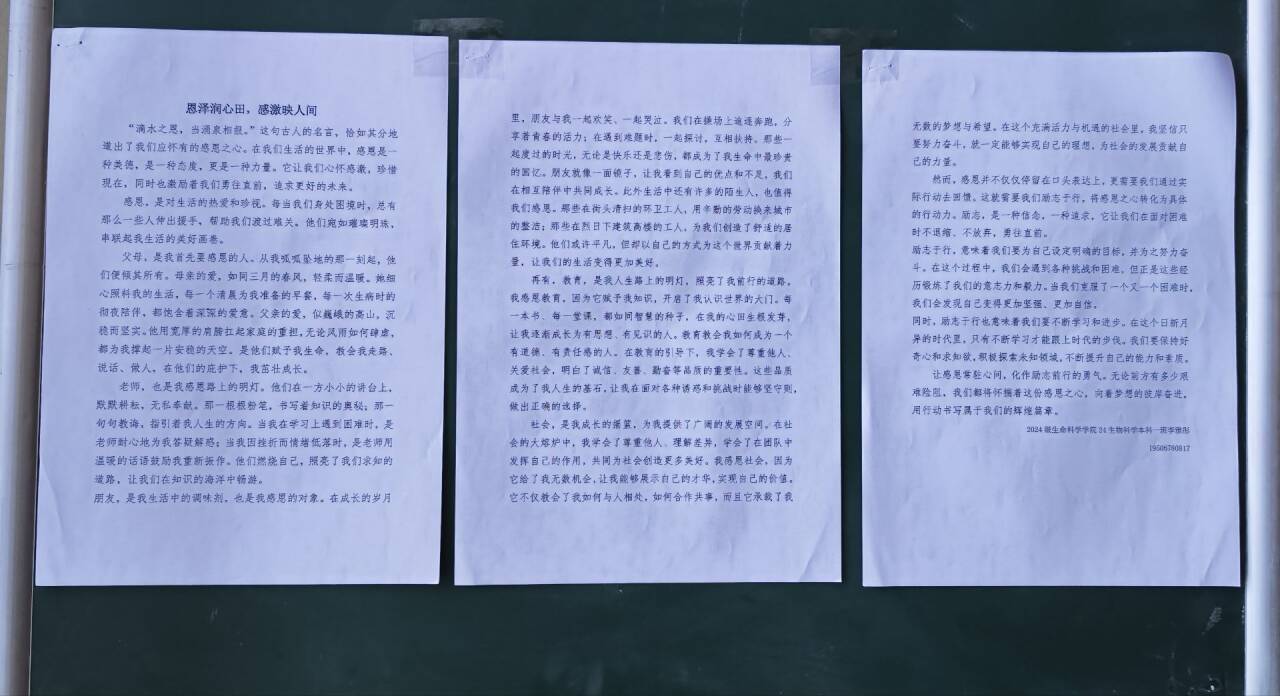 恩泽润心田，感激映人间
“滴水之恩，当涌泉相报。”这句古人的名言，恰如其分地
道出了我们应怀有的感恩之心。在我们生活的世界中，感恩是一
种美德，是一种态度，更是一种力量。它让我们心怀感激，珍惜
现在，同时也激励着我们勇往直前，追求更好的未来。
感恩，是对生活的热爱和珍视。每当我们身处困境时，总有
那么一些人伸出援手，帮助我们渡过难关。他们宛如璀璨明珠，
串联起我生活的美好画卷。
父母，是我首先要感恩的人。从我呱呱坠地的那一刻起，他
们便倾其所有。母亲的爱，如同三月的春风，轻柔而温暖。她细
心照料我的生活，每一个清晨为我准备的早餐，每一次生病时的
彻夜陪伴，都饱含着深深的爱意。父亲的爱，似巍峨的高山，沉
稳而坚实。他用宽厚的肩膀扛起家庭的重担，无论风雨如何肆虐，
都为我撑起一片安稳的天空。是他们赋予我生命，教会我走路、
说话、做人，在他们的庇护下，我茁壮成长。
老师，也是我感恩路上的明灯。他们在一方小小的讲台上，
默默耕耘，无私奉献。那一根根粉笔，书写着知识的奥秘；那一
句句教诲，指引着我人生的方向。当我在学习上遇到困难时，是
老师耐心地为我答疑解惑；当我因挫折而情绪低落时，是老师用
温暖的话语鼓励我重新振作。他们燃烧自己，照亮了我们求知的
道路，让我们在知识的海洋中畅游。
朋友，是我生活中的调味剂，也是我感恩的对象。在成长的岁月
里，朋友与我一起欢笑、一起哭泣。我们在操场上追逐奔跑，分
享着青春的活力；在遇到难题时，一起探讨，互相扶持。那些一
起度过的时光，无论是快乐还是悲伤，都成为了我生命中最珍贵
的回忆。朋友就像一面镜子，让我看到自己的优点和不足，我们
在相互陪伴中共同成长。此外生活中还有许多的陌生人，也值得
我们感恩。那些在街头清扫的环卫工人，用辛勤的劳动换来城市
的整洁；那些在烈日下建筑高楼的工人，为我们创造了舒适的居
住环境。他们或许平凡，但却以自己的方式为这个世界贡献着力
量，让我们的生活变得更加美好。
再有，教育，是我人生路上的明灯，照亮了我前行的道路。
我感恩教育，因为它赋予我知识，开启了我认识世界的大门。每
一本书、每一堂课，都如同智慧的种子，在我的心田生根发芽，
让我逐渐成长为有思想、有见识的人。教育教会我如何成为一个
有道德、有责任感的人。在教育的引导下，我学会了尊重他人、
关爱社会，明白了诚信、友善、勤奋等品质的重要性。这些品质
成为了我人生的基石，让我在面对各种诱惑和挑战时能够坚守原则，
做出正确的选择。
社会，是我成长的摇篮，为我提供了广阔的发展空间。在社
会的大熔炉中，我学会了尊重他人、理解差异，学会了在团队中
发挥自己的作用，共同为社会创造更多美好。我感恩社会，因为
它给了我无数机会，让我能够展示自己的才华，实现自己的价值。
它不仅教会了我如何与人相处，如何合作共事，而且它承载了我
无数的梦想与希望。在这个充满活力与机遇的社会里，我坚信只
要努力奋斗，就一定能够实现自己的理想，为社会的发展贡献自
己的力量。
然而，感恩并不仅仅停留在口头表达上，更需要我们通过实
际行动去回馈。这就需要我们励志于行，将感恩之心转化为具体
的行动力。励志，是一种信念，一种追求，它让我们在面对困难
时不退缩、不放弃，勇往直前。
励志于行，意味着我们要为自己设定明确的目标，并为之努力奋
斗。在这个过程中，我们会遇到各种挑战和困难，但正是这些经
历锻炼了我们的意志力和毅力。当我们克服了一个又一个困难时，
我们会发现自己变得更加坚强、更加自信。
同时，励志于行也意味着我们要不断学习和进步。在这个日新月
异的时代里，只有不断学习才能跟上时代的步伐。我们要保持好
奇心和求知欲，积极探索未知领域，不断提升自己的能力和素质。
让感恩常驻心间，化作励志前行的勇气。无论前方有多少艰
难险阻，我们都将怀揣着这份感恩之心，向着梦想的彼岸奋进，
用行动书写属于我们的辉煌篇章。
2024级生命科学学院24生物科学本科一班李雅彤
19506780817